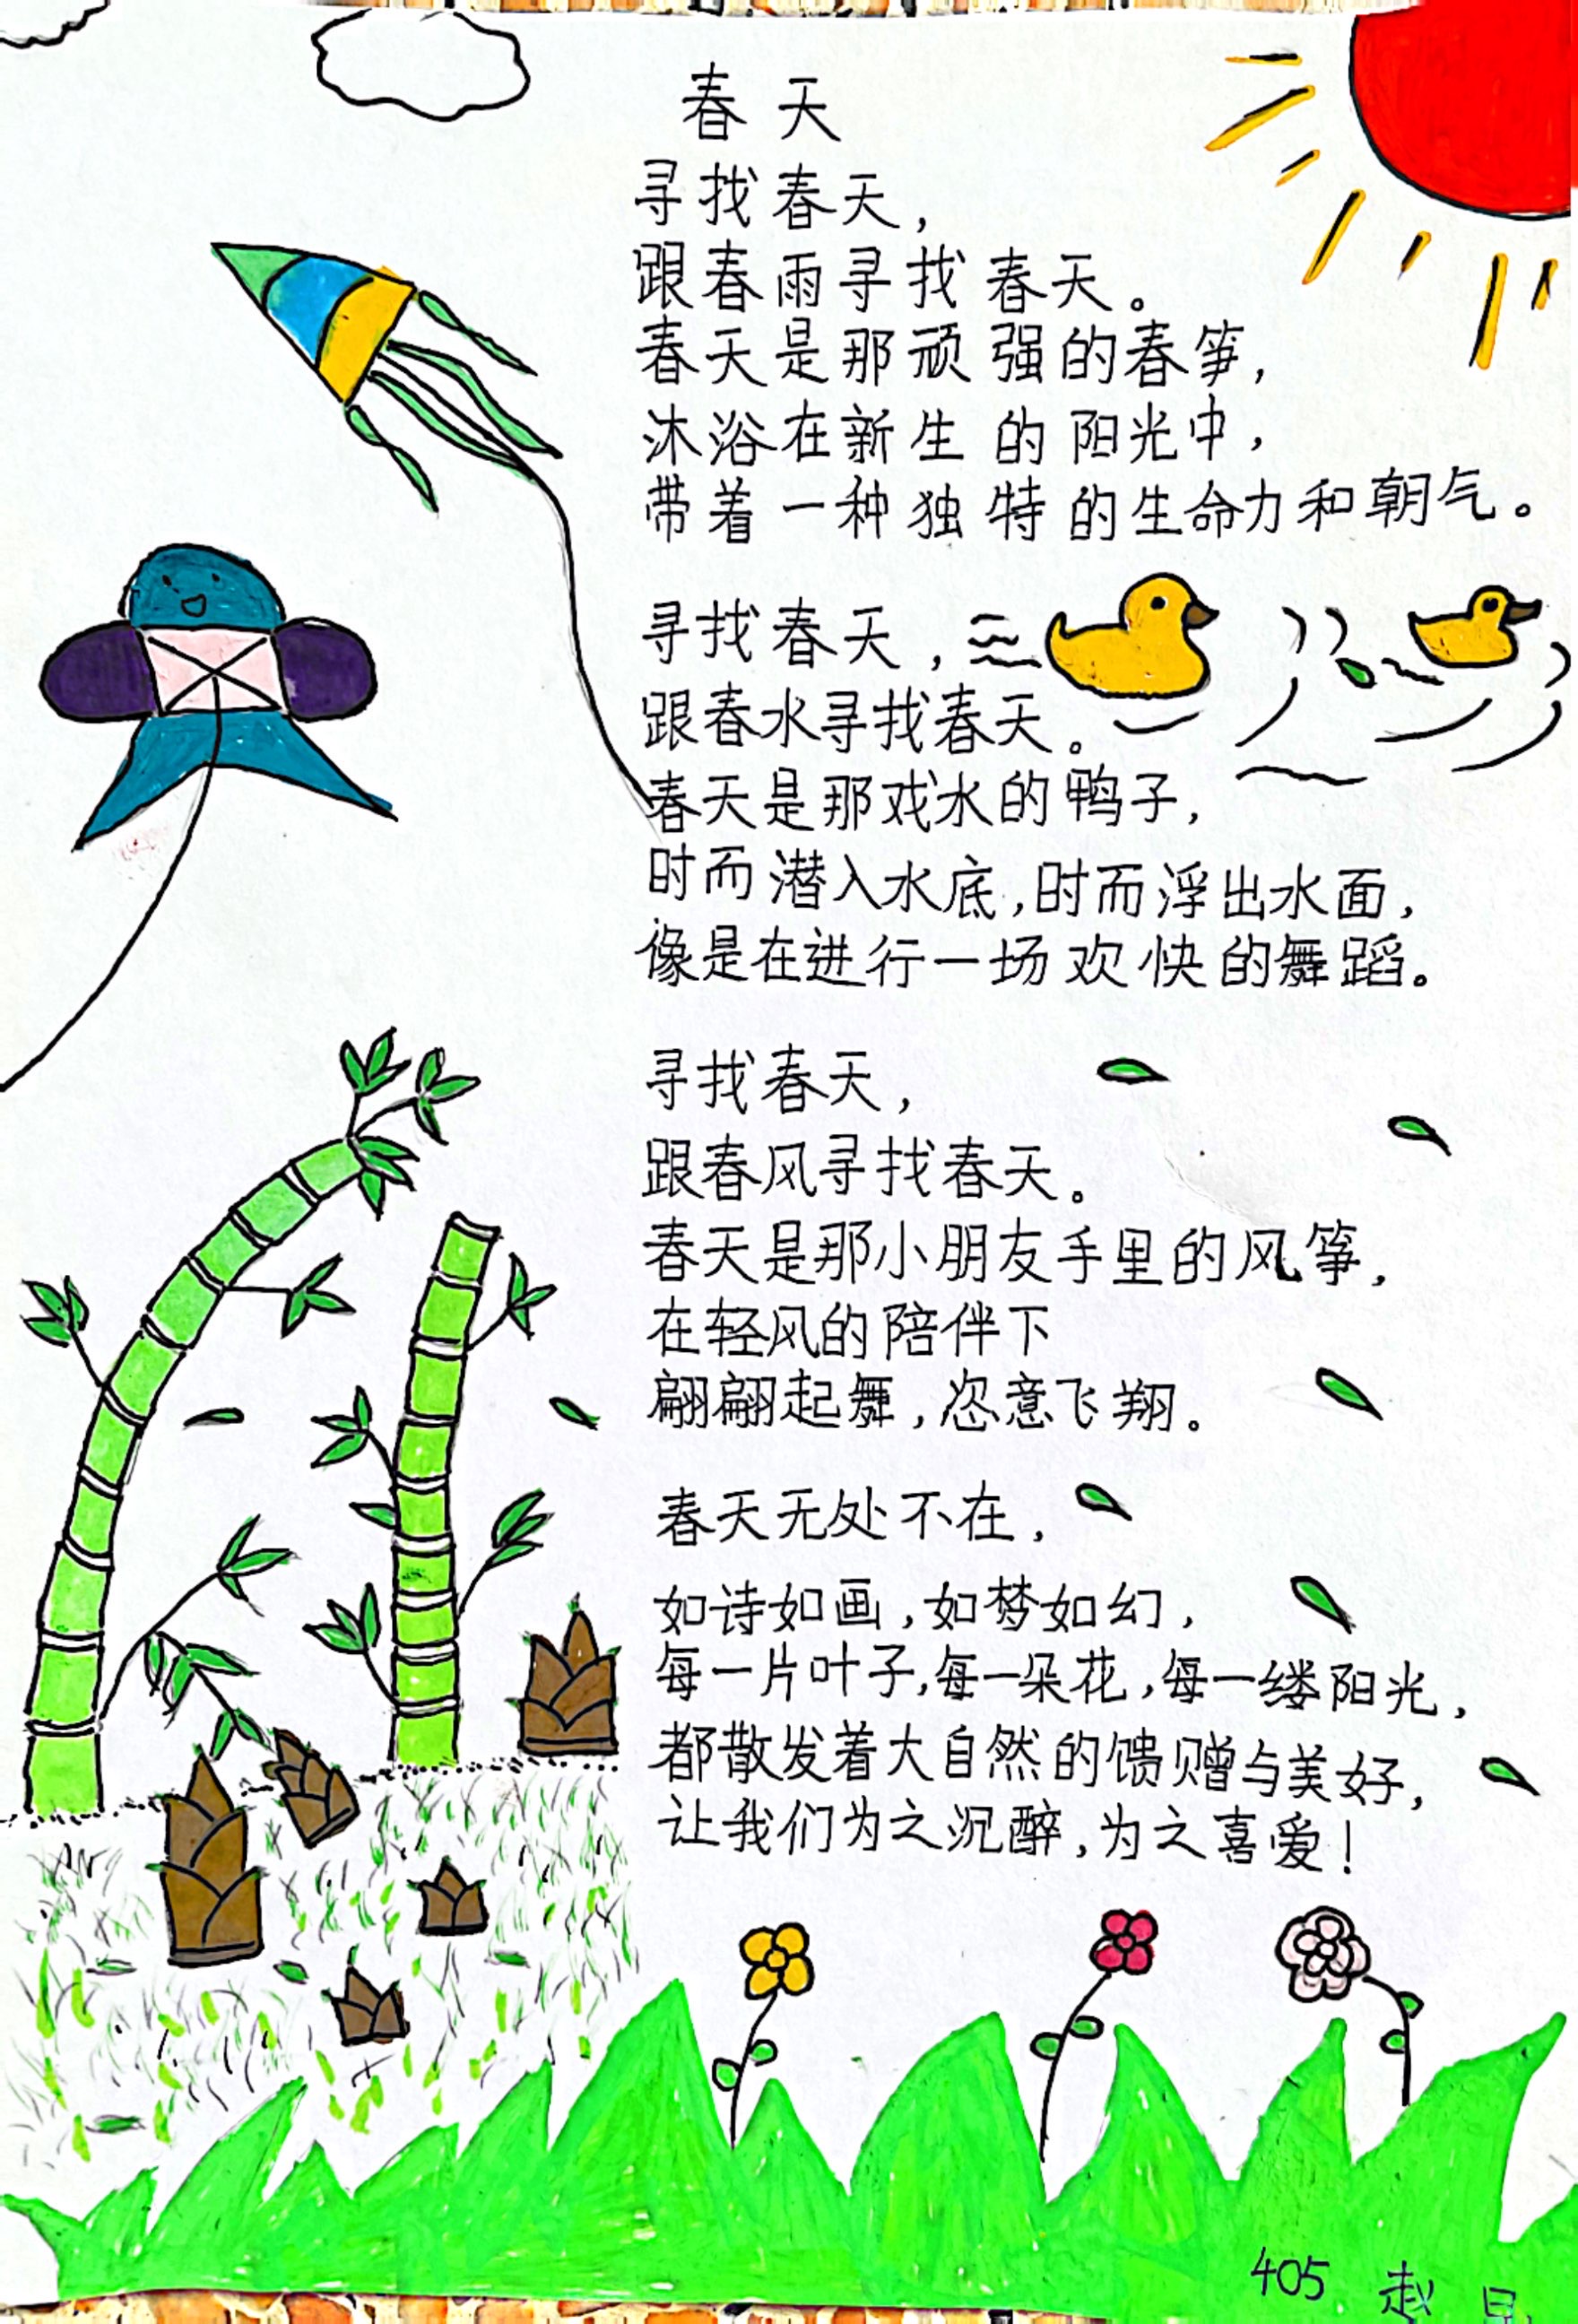 春天
寻找春天，
跟春雨寻找春天。
春天是那顽强的春笋，
沐浴在新生的阳光中，
带着一种独特的生命力和朝气。
寻找春天，
跟春水寻找春天。
春天是那戏水的鸭子，
时而潜入水底，时而浮出水面，
像是在进行一场欢快的舞蹈。
寻找春天，
跟春风寻找春天。
春天是那小朋友手里的风筝，
在轻风的陪伴下
翩翩起舞，恣意飞翔。
春天无处不在，
如诗如画，如梦如幻，
每一片叶子，每一朵花，每一缕阳光，
都散发着大自然的馈赠与美好，
让我们为之沉醉，为之喜爱！
405 赵